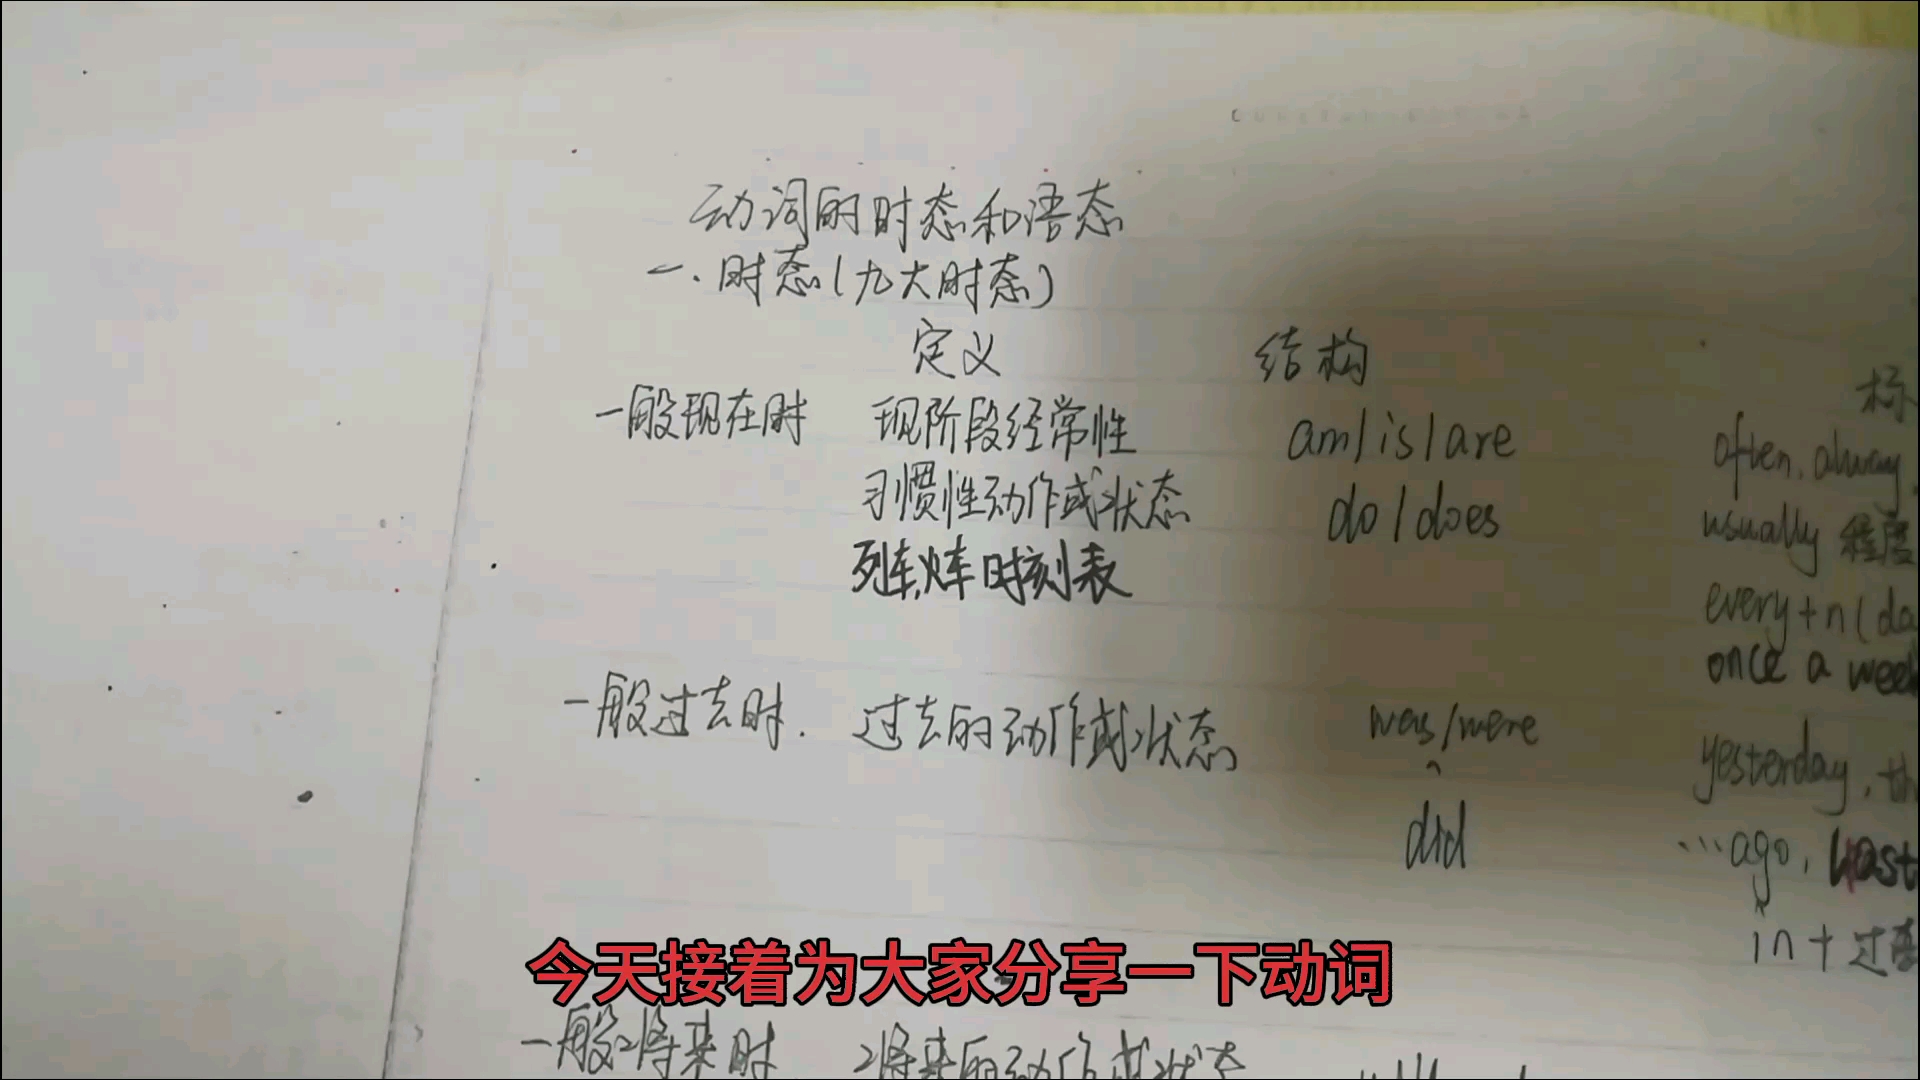 动词的时态和语态
一、时态(九大时态)
定义 结构 标
一般现在时 现阶段经常性 am/is/are often, always,
习惯性动作或状态 do/does usually 程度
列车,火车时刻表 every+n(da
once a week
一般过去时. 过去的动作或状态 was/were yesterday, th
did …ago, last
in+过去
今天接着为大家分享一下动词
一般将来时 将来的动作或状态